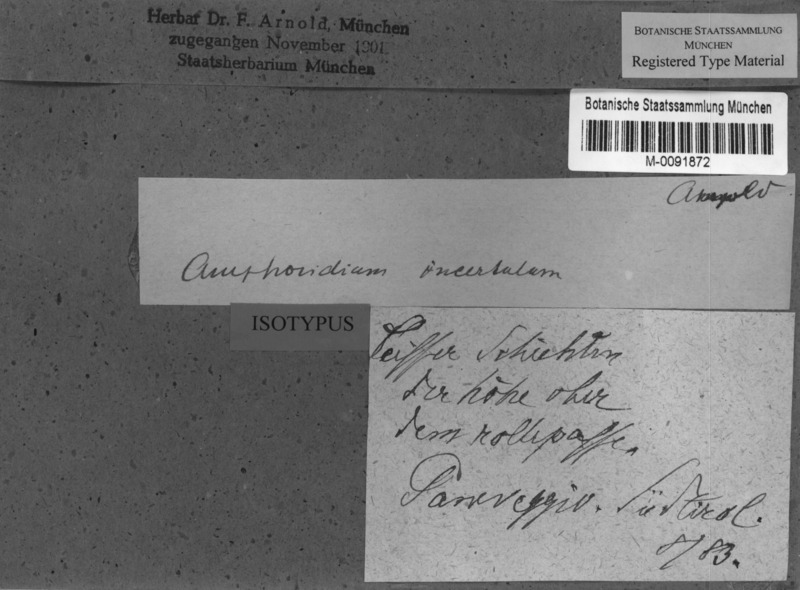 Herbar Dr. F. Arnold, München
zugegangen November 1901.
Staatsherbarium München
BOTANISCHE STAATSSAMMLUNG
MÜNCHEN
Registered Type Material
Botanische Staatssammlung München
M-0091872
Arnold
Amphoridium incertulum
ISOTYPUS
Seisser Schichten
der höhe ober
dem rollepasse.
Paneveggio. Südtirol.
8/83.